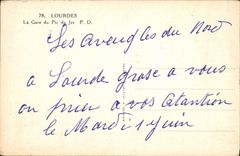 78. LOURDES
La Gare du Pic du Jer P. D.
Les aveugles du Nord
a Lourde grase a vous
on prier a vos atantion
le Mardi 1 juin